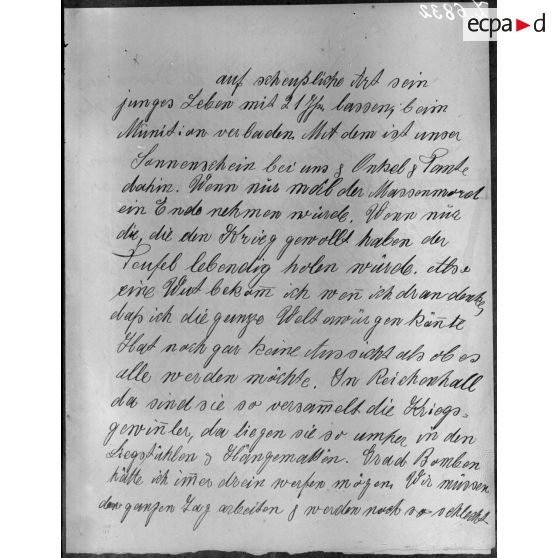 26832
ecpa d
auf scheußliche Art sein
junges Leben mit 21 J. lassen, beim
Munition verladen. Mit dem ist unser
Sonnenschein bei uns & Onkel & Tante
dahin. Wenn nur mal der Massenmord
ein Ende nehmen würde. Wenn nur
die, die den Krieg gewollt haben der
Teufel lebendig holen würde. Also
eine Wut bekom̅ ich wen̅ ich dran denke,
daß ich die ganze Welt erwürgen kön̅te
Hat noch gar keine Aussicht als ob es
alle werden möchte. In Reichenhall
da sind sie so versam̅elt die Kriegs-
gewin̅ler, da liegen sie so umher in den
Liegstühlen & Hängematten. Grad Bomben
hätte ich im̅er drein werfen mögen. Wir müssen
den ganzen Tag arbeiten & werden noch so schlecht